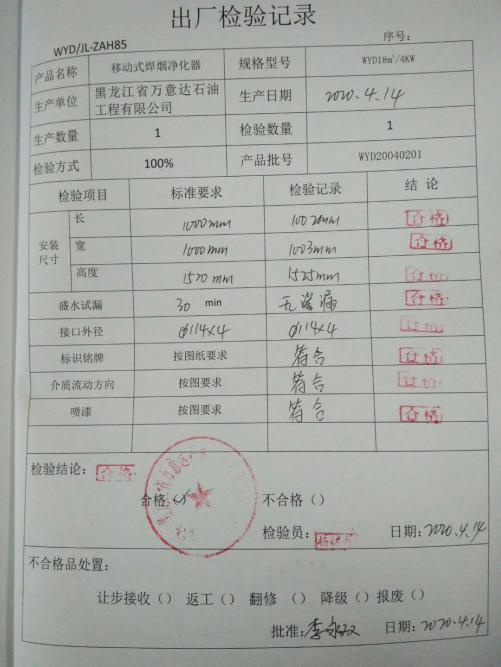 出厂检验记录
WYD/JL-ZAH85 序号:
产品名称 移动式焊烟净化器 规格型号 WYD18m³/4KW
生产单位 黑龙江省万意达石油工程有限公司 生产日期 2020.4.14
生产数量 1 检验数量 1
检验方式 100% 产品批号 WYD20040201
检验项目 标准要求 检验记录 结论
安装尺寸 长 1000mm 1002mm 合格
宽 1000mm 1003mm 合格
高度 1520mm 1525mm 合格
盛水试漏 30 min 无渗漏 合格
接口外径 φ114×4 φ114×4 合格
标识铭牌 按图纸要求 符合 合格
介质流动方向 按图要求 符合 合格
喷漆 按图要求 符合 合格
检验结论: 合格
合格(√) 不合格()
检验员: 日期:2020.4.14
不合格品处置:
让步接收() 返工() 翻修() 降级() 报废()
批准: 日期:2020.4.14